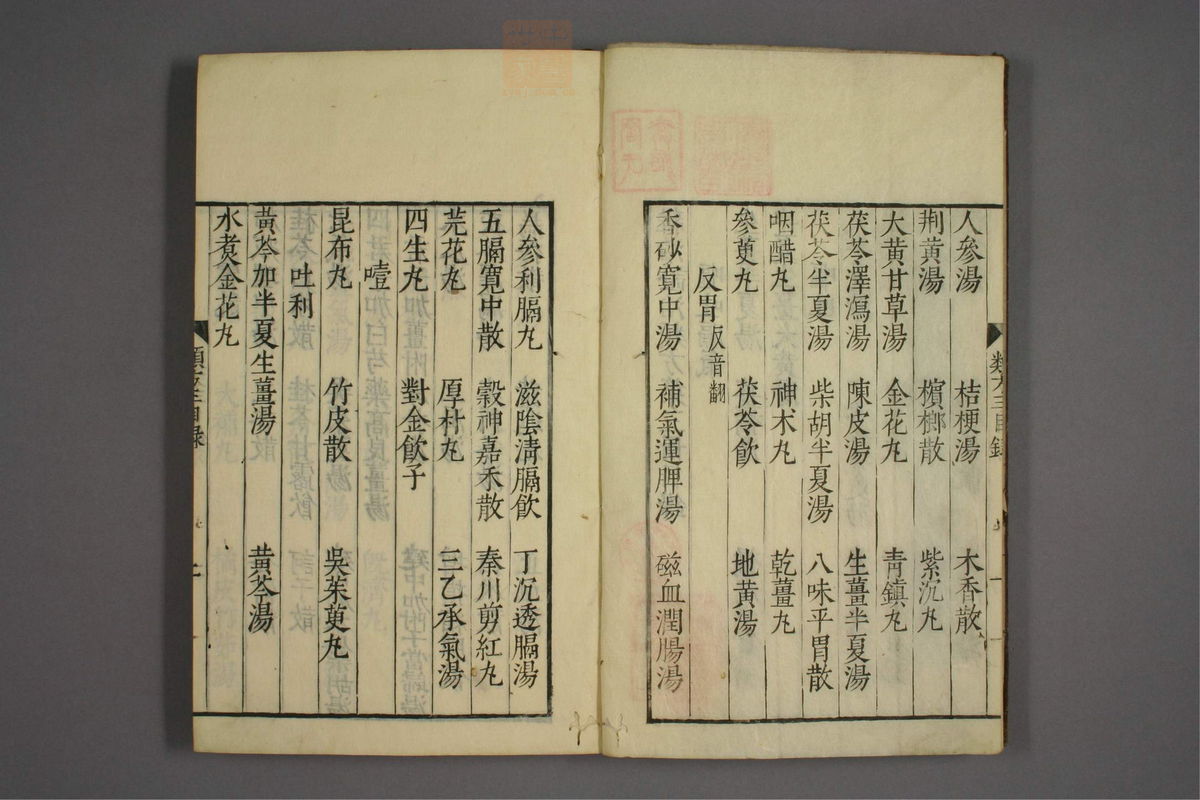 人參湯　桔梗湯　木香散
荆黄湯　檳榔散　紫沉丸
大黄甘草湯　金花丸　青鎮丸
茯苓澤瀉湯　陳皮湯　生薑半夏湯
茯苓半夏湯　柴胡半夏湯　八味平胃散
咽醋丸　神术丸　乾薑丸
參萸丸　茯苓飲　地黄湯
反胃 反音翻
香砂寬中湯　補氣運脾湯　磁血潤腸湯
人參利膈丸　滋陰清膈飲　丁沉透膈湯
五膈寬中散　穀神嘉禾散　秦川剪紅丸
芫花丸　厚朴丸　三乙承氣湯
四生丸　對金飲子
噎
昆布丸　竹皮散　吳茱萸丸
吐利
黃芩加半夏生薑湯　黄芩湯
水煮金花丸